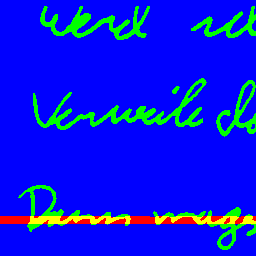 Werd ic
Verweile do
Dann mags